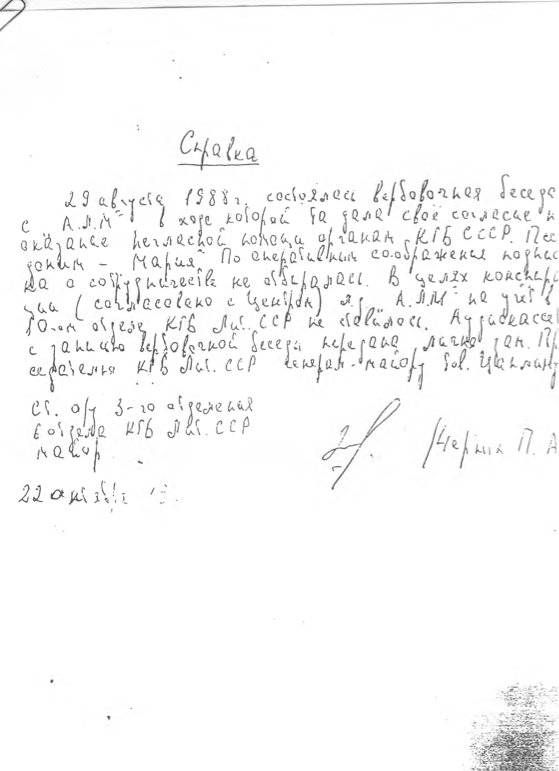 Справка
29 августа 1988г. состоялась вербовочная беседа
с А.Л.М" в ходе которой та дала своё согласие н
оказание негласной помощи органам КГБ СССР. Псе
доним - Мария". По оперативным соображениям подпис
ка о сотрудничестве не отбиралась. В целях конспира
ции (согласовано с Центром) л.д. А.Л.М" на учёт в
10-ом отделе КГБ Лит. ССР не ставилось. Аудиокассета
с записью вербовочной беседы передана лично зам. Пр
седателя КГБ Лит. ССР генерал-майору
Ст. о/у 3-го отделения
6 отдела КГБ Лит. ССР
майор
П. А
22